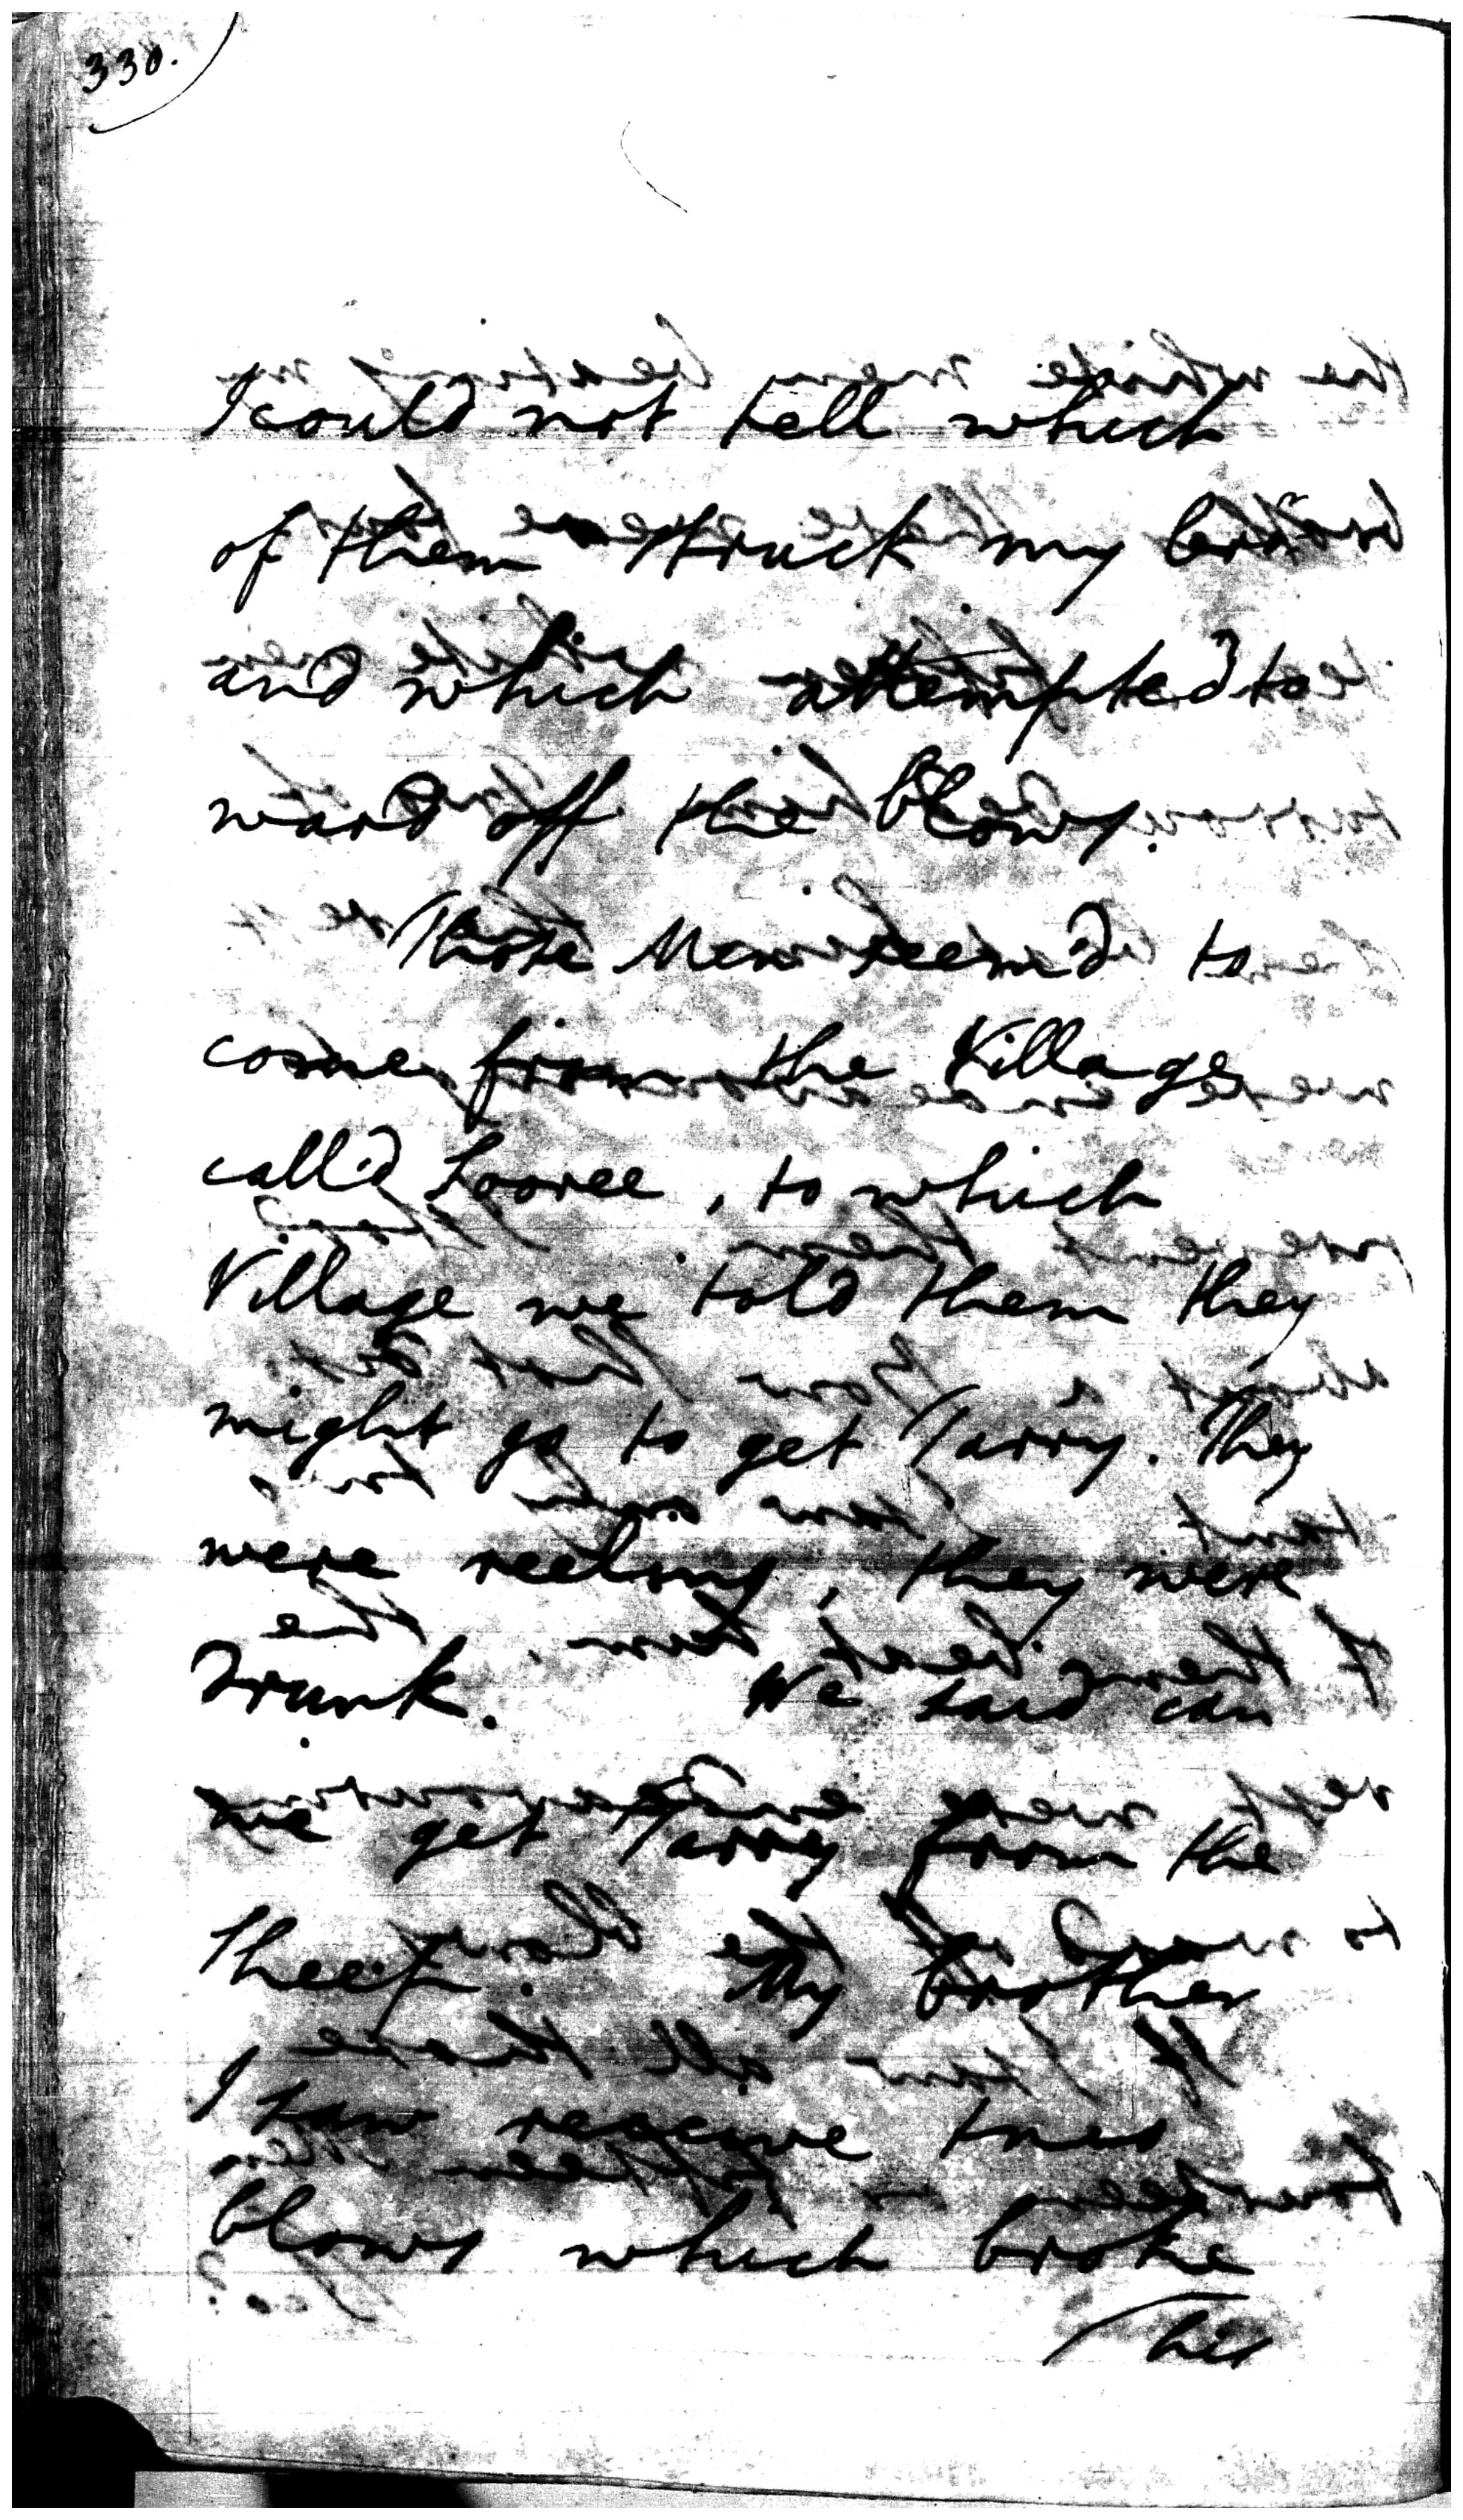 330.
I could not tell which
of them struck my bror
and which attempted to
ward off the blows.
Those Men seem'd to
come from the Village
call'd Looree, to which
Village we told them they
might go to get Tarry. They
were reeling, they were
drunk. We said can
we get Tarry from the
Sheep. My brother
I saw receive
blows which broke
his